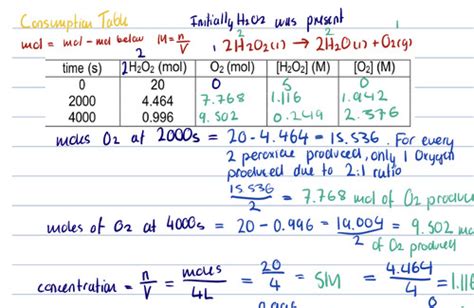 Consumption Table
Initially H₂O₂ was present
mol = mol - mol below M = n/V
2 2 1
2H₂O₂(l) → 2H₂O(l) + O₂(g)
time (s) 2H₂O₂ (mol) O₂ (mol) [H₂O₂] (M) [O₂] (M)
0 20 0 5 0
2000 4.464 7.768 1.116 1.942
4000 0.996 9.502 0.249 2.376
moles O₂ at 2000s = 20 - 4.464 = 15.536. For every
2 peroxide produced, only 1 Oxygen
produced due to 2:1 ratio
15.536/2 = 7.768 mol of O₂ produce
moles of O₂ at 4000s = 20 - 0.996 = 19.004/2 = 9.502 mo
of O₂ produced
concentration = n/V = moles/4L = 20/4 = 5M = 4.464/4 = 1.116